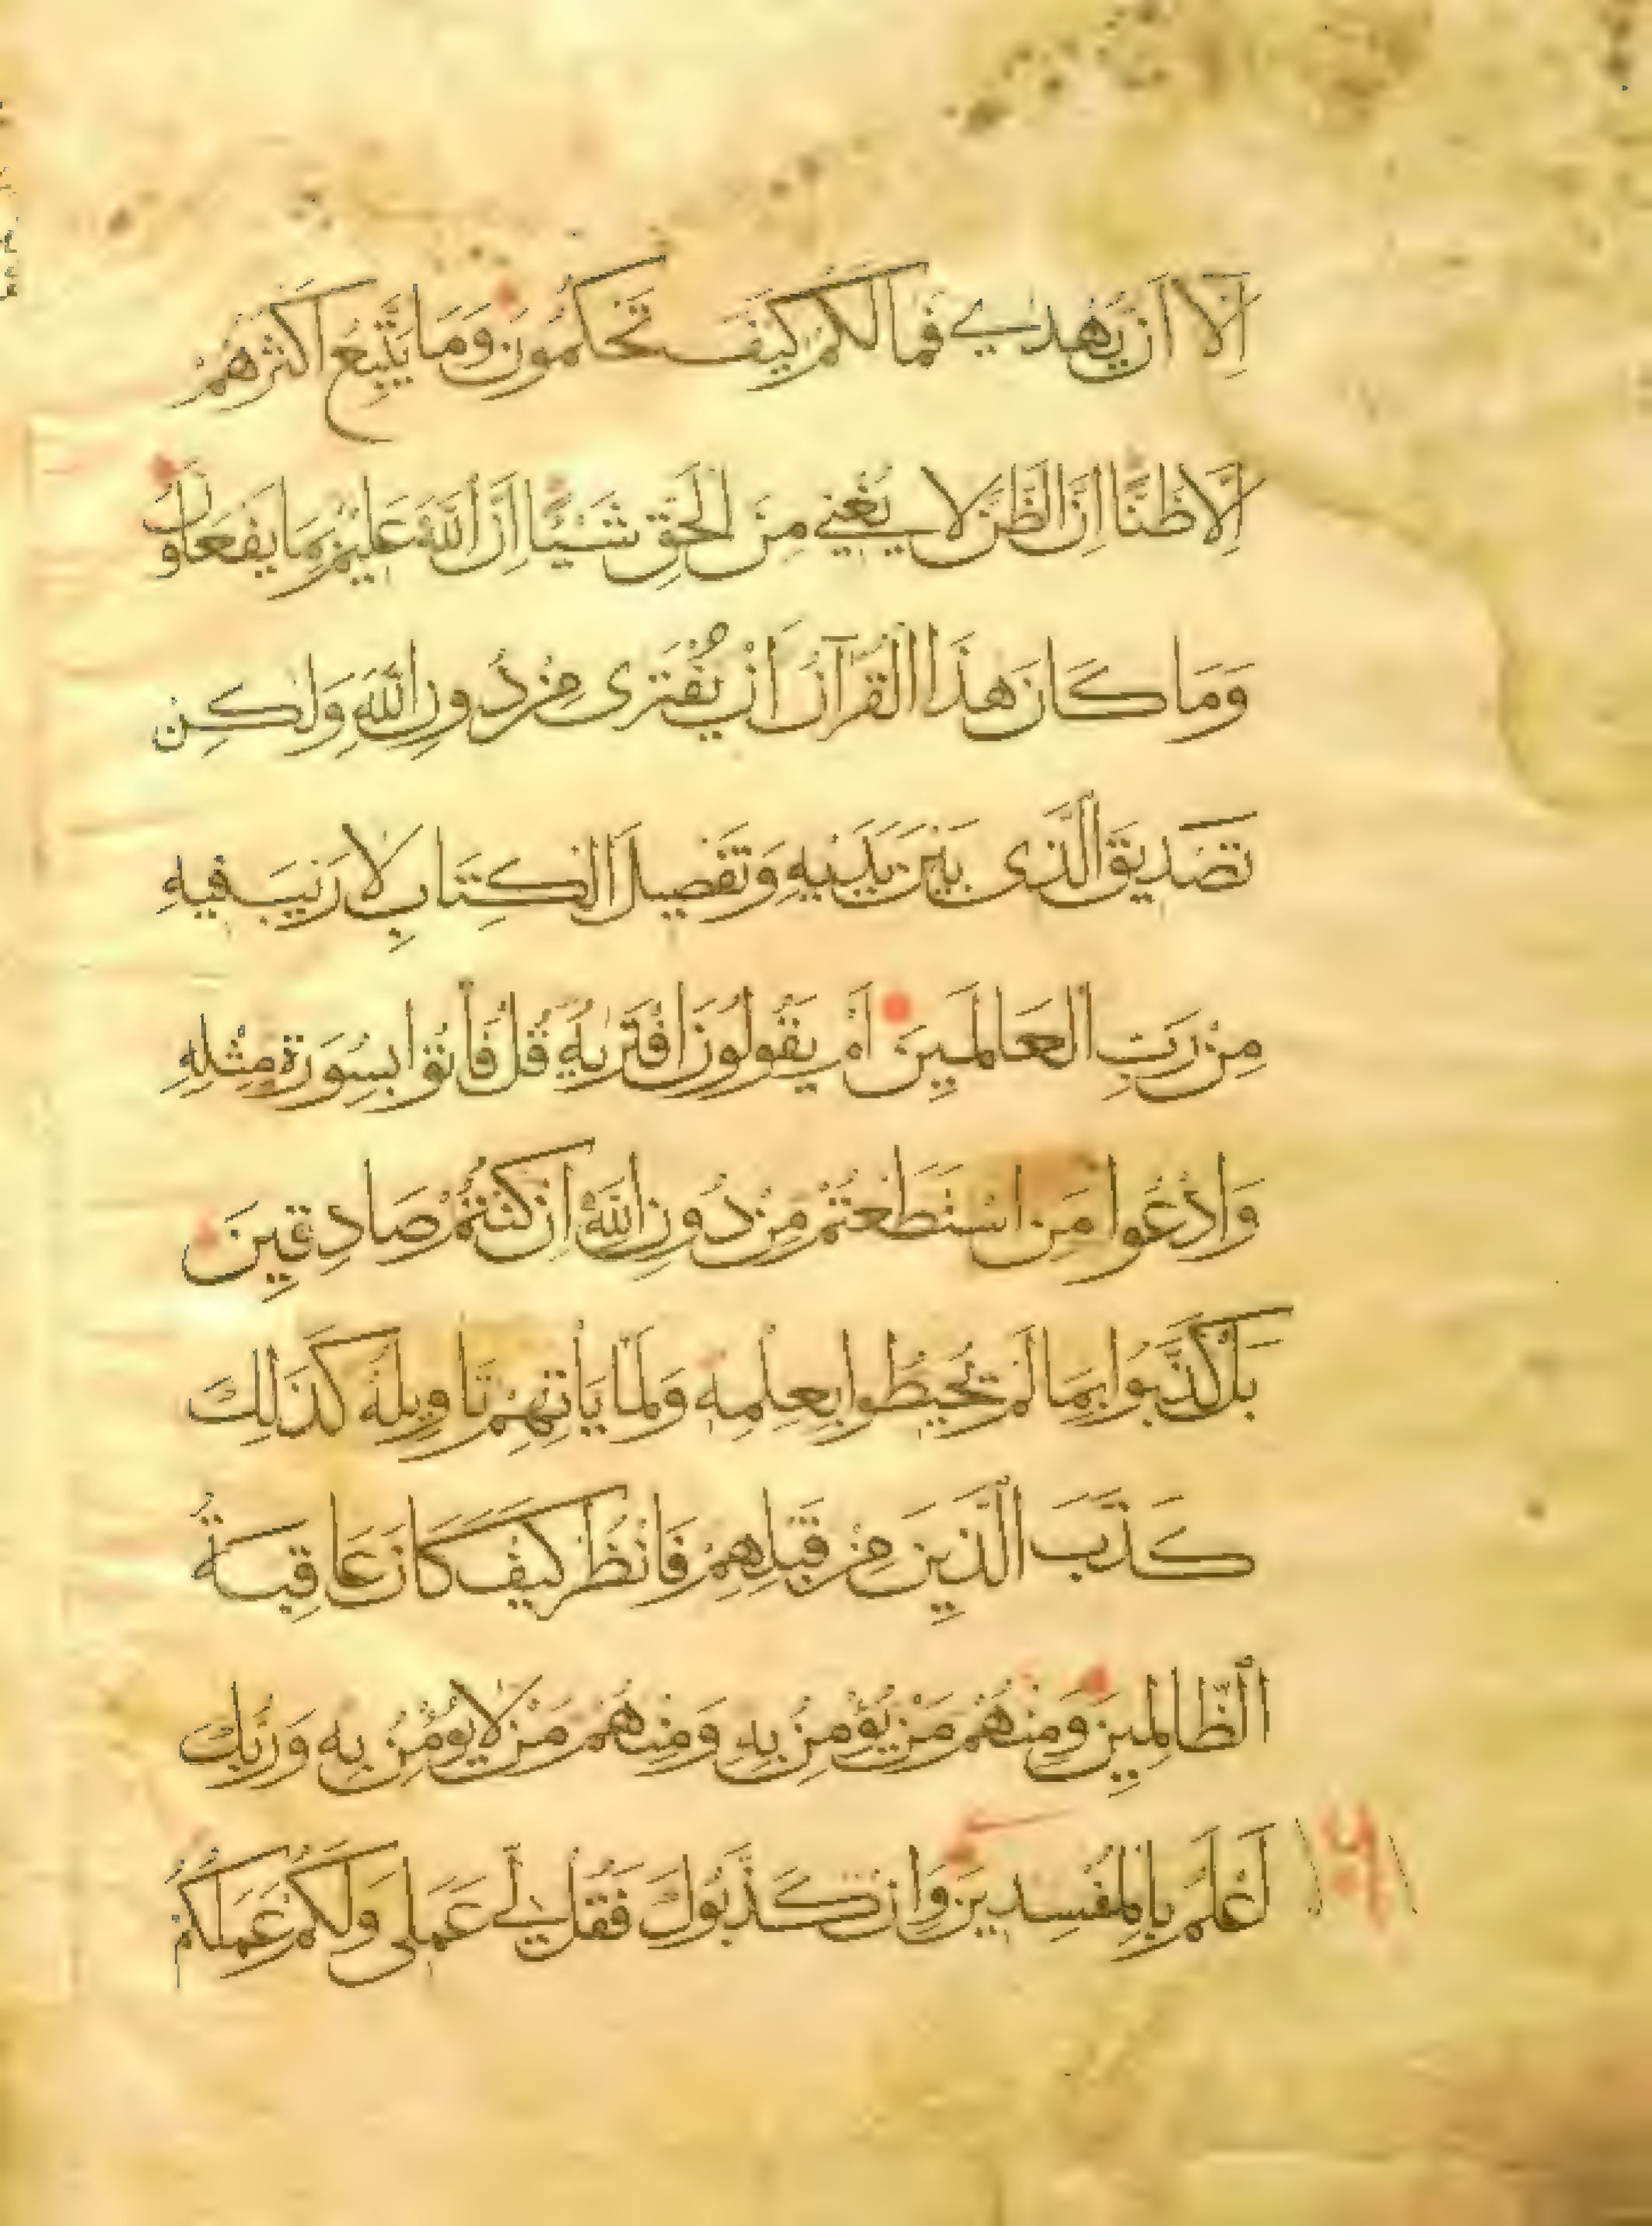 اِلَّا اَنْ يُهْدٰي فَمَا لَكُمْ كَيْفَ تَحْكُمُونَ وَمَا يَتَّبِعُ اَكْثَرُهُمْ
اِلَّا ظَنًّا اِنَّ الظَّنَّ لَا يُغْنِي مِنَ الْحَقِّ شَيْـًٔا اِنَّ اللّٰهَ عَلِيْمٌ بِمَا يَفْعَلُونَ
وَمَا كَانَ هٰذَا الْقُرْآنُ اَنْ يُفْتَرٰى مِنْ دُونِ اللّٰهِ وَلٰكِنْ
تَصْدِيقَ الَّذِى بَيْنَ يَدَيْهِ وَتَفْصِيلَ الْكِتَابِ لَا رَيْبَ فِيهِ
مِنْ رَبِّ الْعَالَمِينَ اَمْ يَقُولُونَ افْتَرٰيهُ قُلْ فَأْتُوا بِسُورَةٍ مِثْلِهِ
وَادْعُوا مَنِ اسْتَطَعْتُمْ مِنْ دُونِ اللّٰهِ اِنْ كُنْتُمْ صَادِقِينَ
بَلْ كَذَّبُوا بِمَا لَمْ يُحِيطُوا بِعِلْمِهِ وَلَمَّا يَأْتِهِمْ تَأْوِيلُهُ كَذَلِكَ
كَذَّبَ الَّذِينَ مِنْ قَبْلِهِمْ فَانْظُرْ كَيْفَ كَانَ عَاقِبَةُ
الظَّالِمِينَ وَمِنْهُمْ مَنْ يُؤْمِنُ بِهِ وَمِنْهُمْ مَنْ لَا يُؤْمِنُ بِهِ وَرَبُّكَ
اَعْلَمُ بِالْمُفْسِدِينَ وَاِنْ كَذَّبُوكَ فَقُلْ لِي عَمَلِى وَلَكُمْ عَمَلُكُمْ